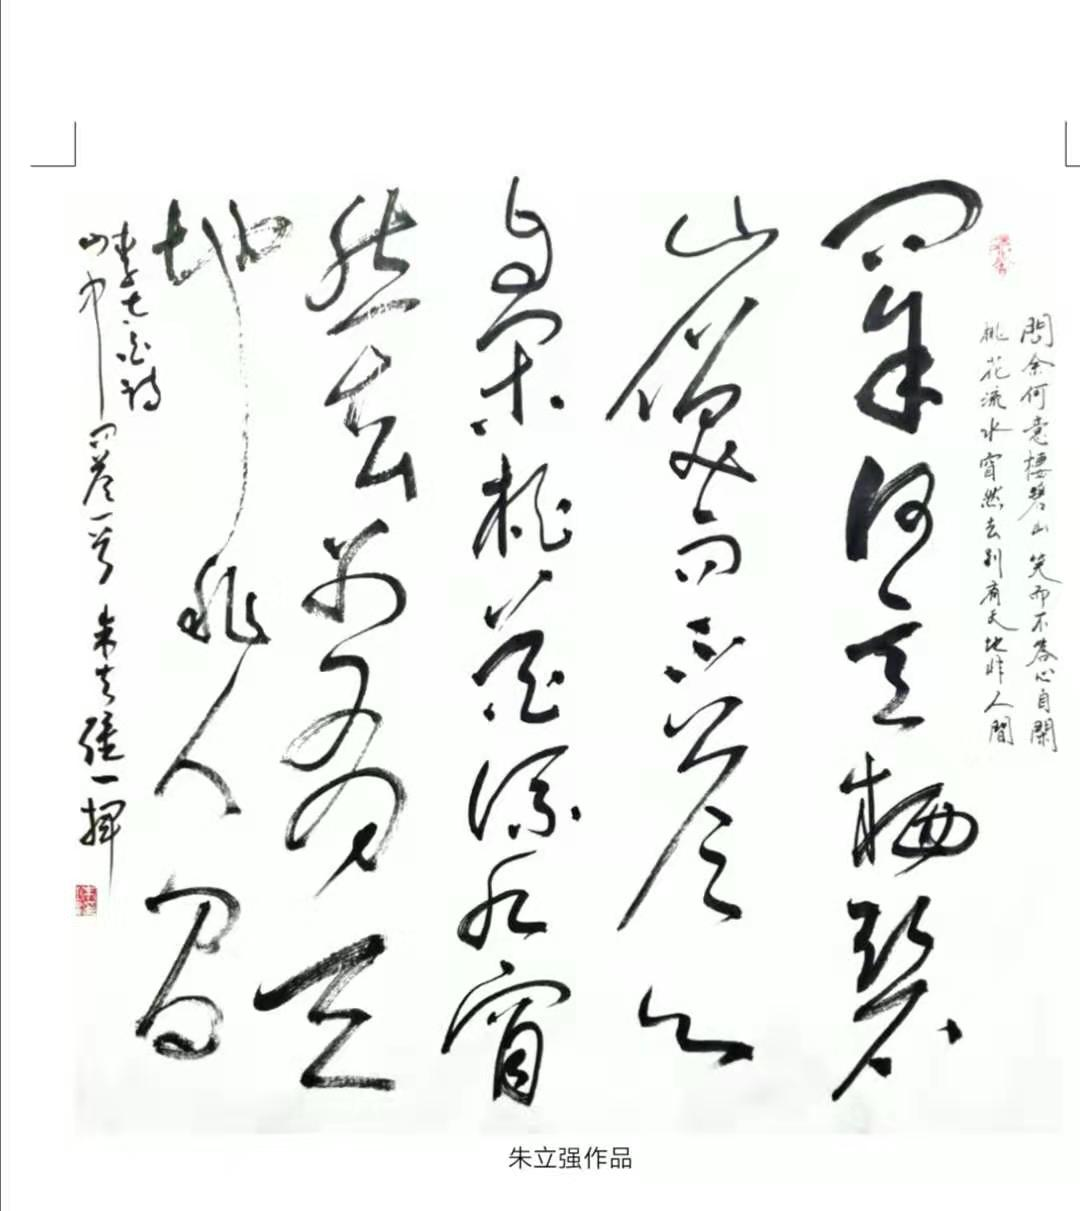 問余何意棲碧山笑而不答心自閑
桃花流水窅然去别有天地非人間
問余何意栖碧
山笑而不答心
自閑桃花流水窅
然去别有天
地非人間
李太白詩
山中問答一首 朱立强一揮
朱立强作品